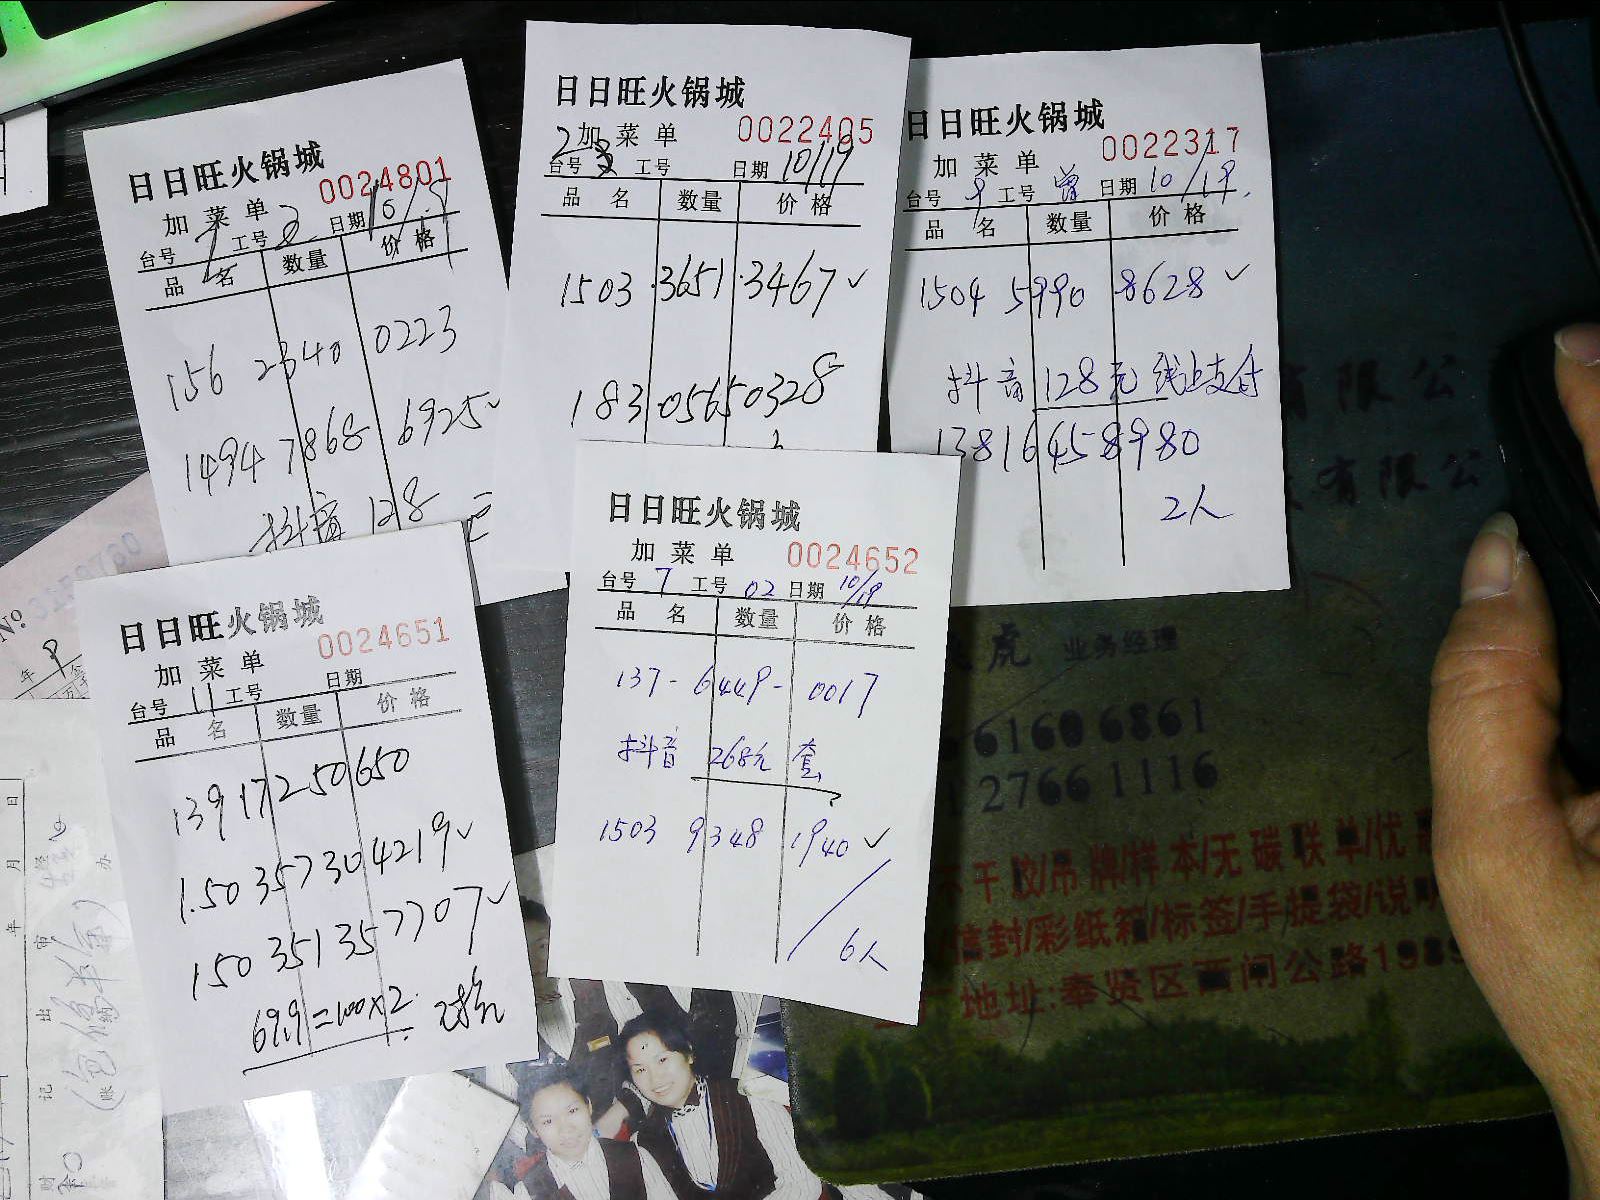 日日旺火锅城
0024801
加菜单
台号 工号 日期
品名 数量 价格
156 2340 0223
1494 7868 6925✓
抖音 128
日日旺火锅城
加菜单 0022405
台号 工号 日期 10/19
品名 数量 价格
1503 3651 3467✓
183 0565 0328
日日旺火锅城
加菜单 0022317
台号 9 工号 曾 日期 10/19.
品名 数量 价格
1504 5990 8628✓
抖音 128元 线上支付
13816458980
2人
日日旺火锅城
加菜单 0024651
台号 11 工号 日期
品名 数量 价格
13917250650
150357304219✓
150351357707✓
69.9=100×2.
日日旺火锅城
加菜单 0024652
台号 7 工号 02 日期 10/19
品名 数量 价格
137-6449-0017
抖音 268元 套
1503 9348 1940✓
6人
有限公
有限公
虎 业务经理
6160 6861
2766 1116
不干胶/吊牌/样本/无碳联单/优
信封/彩纸箱/标签/手提袋/说明
厂地址:奉贤区西闸公路1989
No
年 9
日
月
年
审
出
记